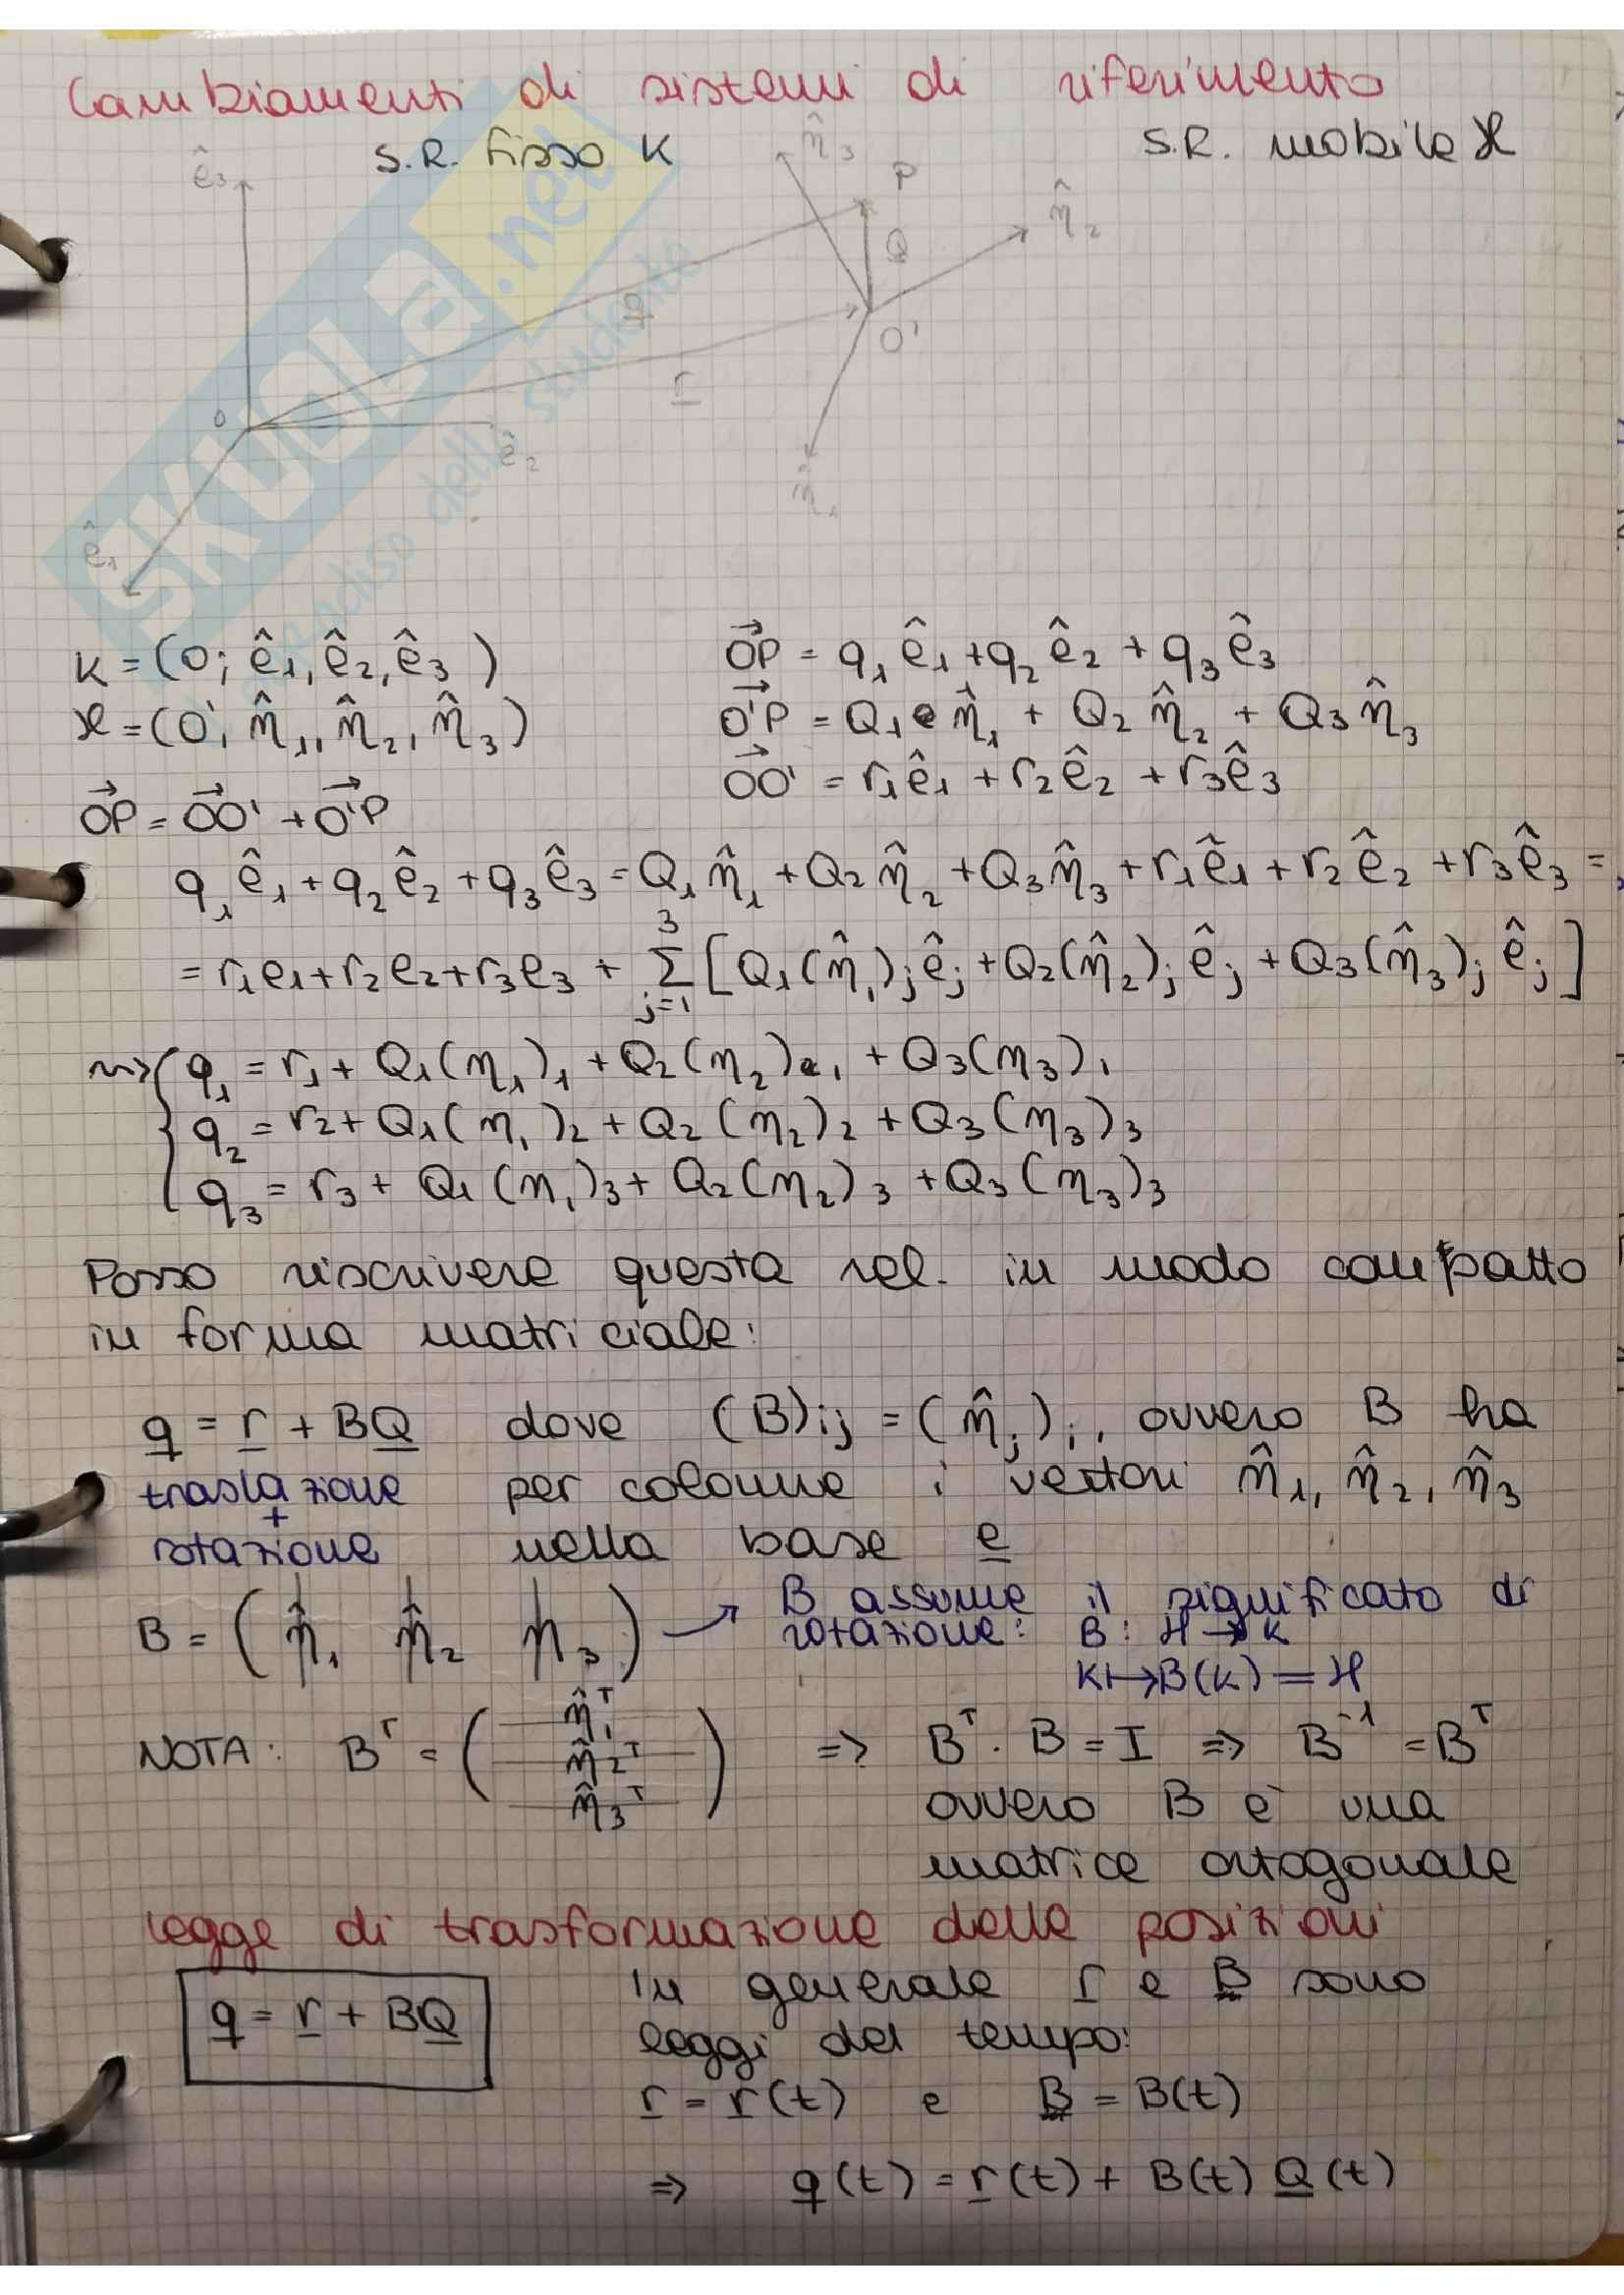 Cambiamenti di sistemi di riferimento
S.R. fisso K
S.R. mobile ℋ
ê₃
η̂₃
P
η̂₂
Q
q
O'
r
O
ê₂
η̂₁
ê₁
SKUOLA.net
dello studente
K = (O; ê₁, ê₂, ê₃)
OP⃗ = q₁ ê₁ + q₂ ê₂ + q₃ ê₃
ℋ = (O'; η̂₁, η̂₂, η̂₃)
O'P⃗ = Q₁ η̂₁ + Q₂ η̂₂ + Q₃ η̂₃
OO'⃗ = r₁ê₁ + r₂ê₂ + r₃ê₃
OP⃗ = OO'⃗ + O'P⃗
q₁ ê₁ + q₂ ê₂ + q₃ ê₃ = Q₁ η̂₁ + Q₂ η̂₂ + Q₃ η̂₃ + r₁ê₁ + r₂ ê₂ + r₃ ê₃ =
= r₁e₁ + r₂e₂ + r₃e₃ + Σ_{j=1}^{3} [Q₁(η̂₁)ⱼ êⱼ + Q₂(η̂₂)ⱼ êⱼ + Q₃(η̂₃)ⱼ êⱼ]
⇝ { q₁ = r₁ + Q₁(η₁)₁ + Q₂(η₂)₁ + Q₃(η₃)₁
q₂ = r₂ + Q₁(η₁)₂ + Q₂(η₂)₂ + Q₃(η₃)₃
q₃ = r₃ + Q₁(η₁)₃ + Q₂(η₂)₃ + Q₃(η₃)₃
Posso riscrivere questa rel. in modo compatto
in forma matriciale:
q = r + BQ dove (B)ij = (η̂ⱼ)ᵢ, ovvero B ha
traslazione + rotazione
per colonne i vettori η̂₁, η̂₂, η̂₃
nella base e
B = (η̂₁ η̂₂ η₃) → B assume il significato di
rotazione: B: ℋ → K
K ↦ B(K) = ℋ
NOTA: Bᵀ = (η̂₁ᵀ
η̂₂ᵀ
η̂₃ᵀ) => Bᵀ · B = I => B⁻¹ = Bᵀ
ovvero B è una
matrice ortogonale
legge di trasformazione delle posizioni
q = r + BQ
In generale r e B sono
leggi del tempo:
r = r(t) e B = B(t)
=> q(t) = r(t) + B(t) Q(t)